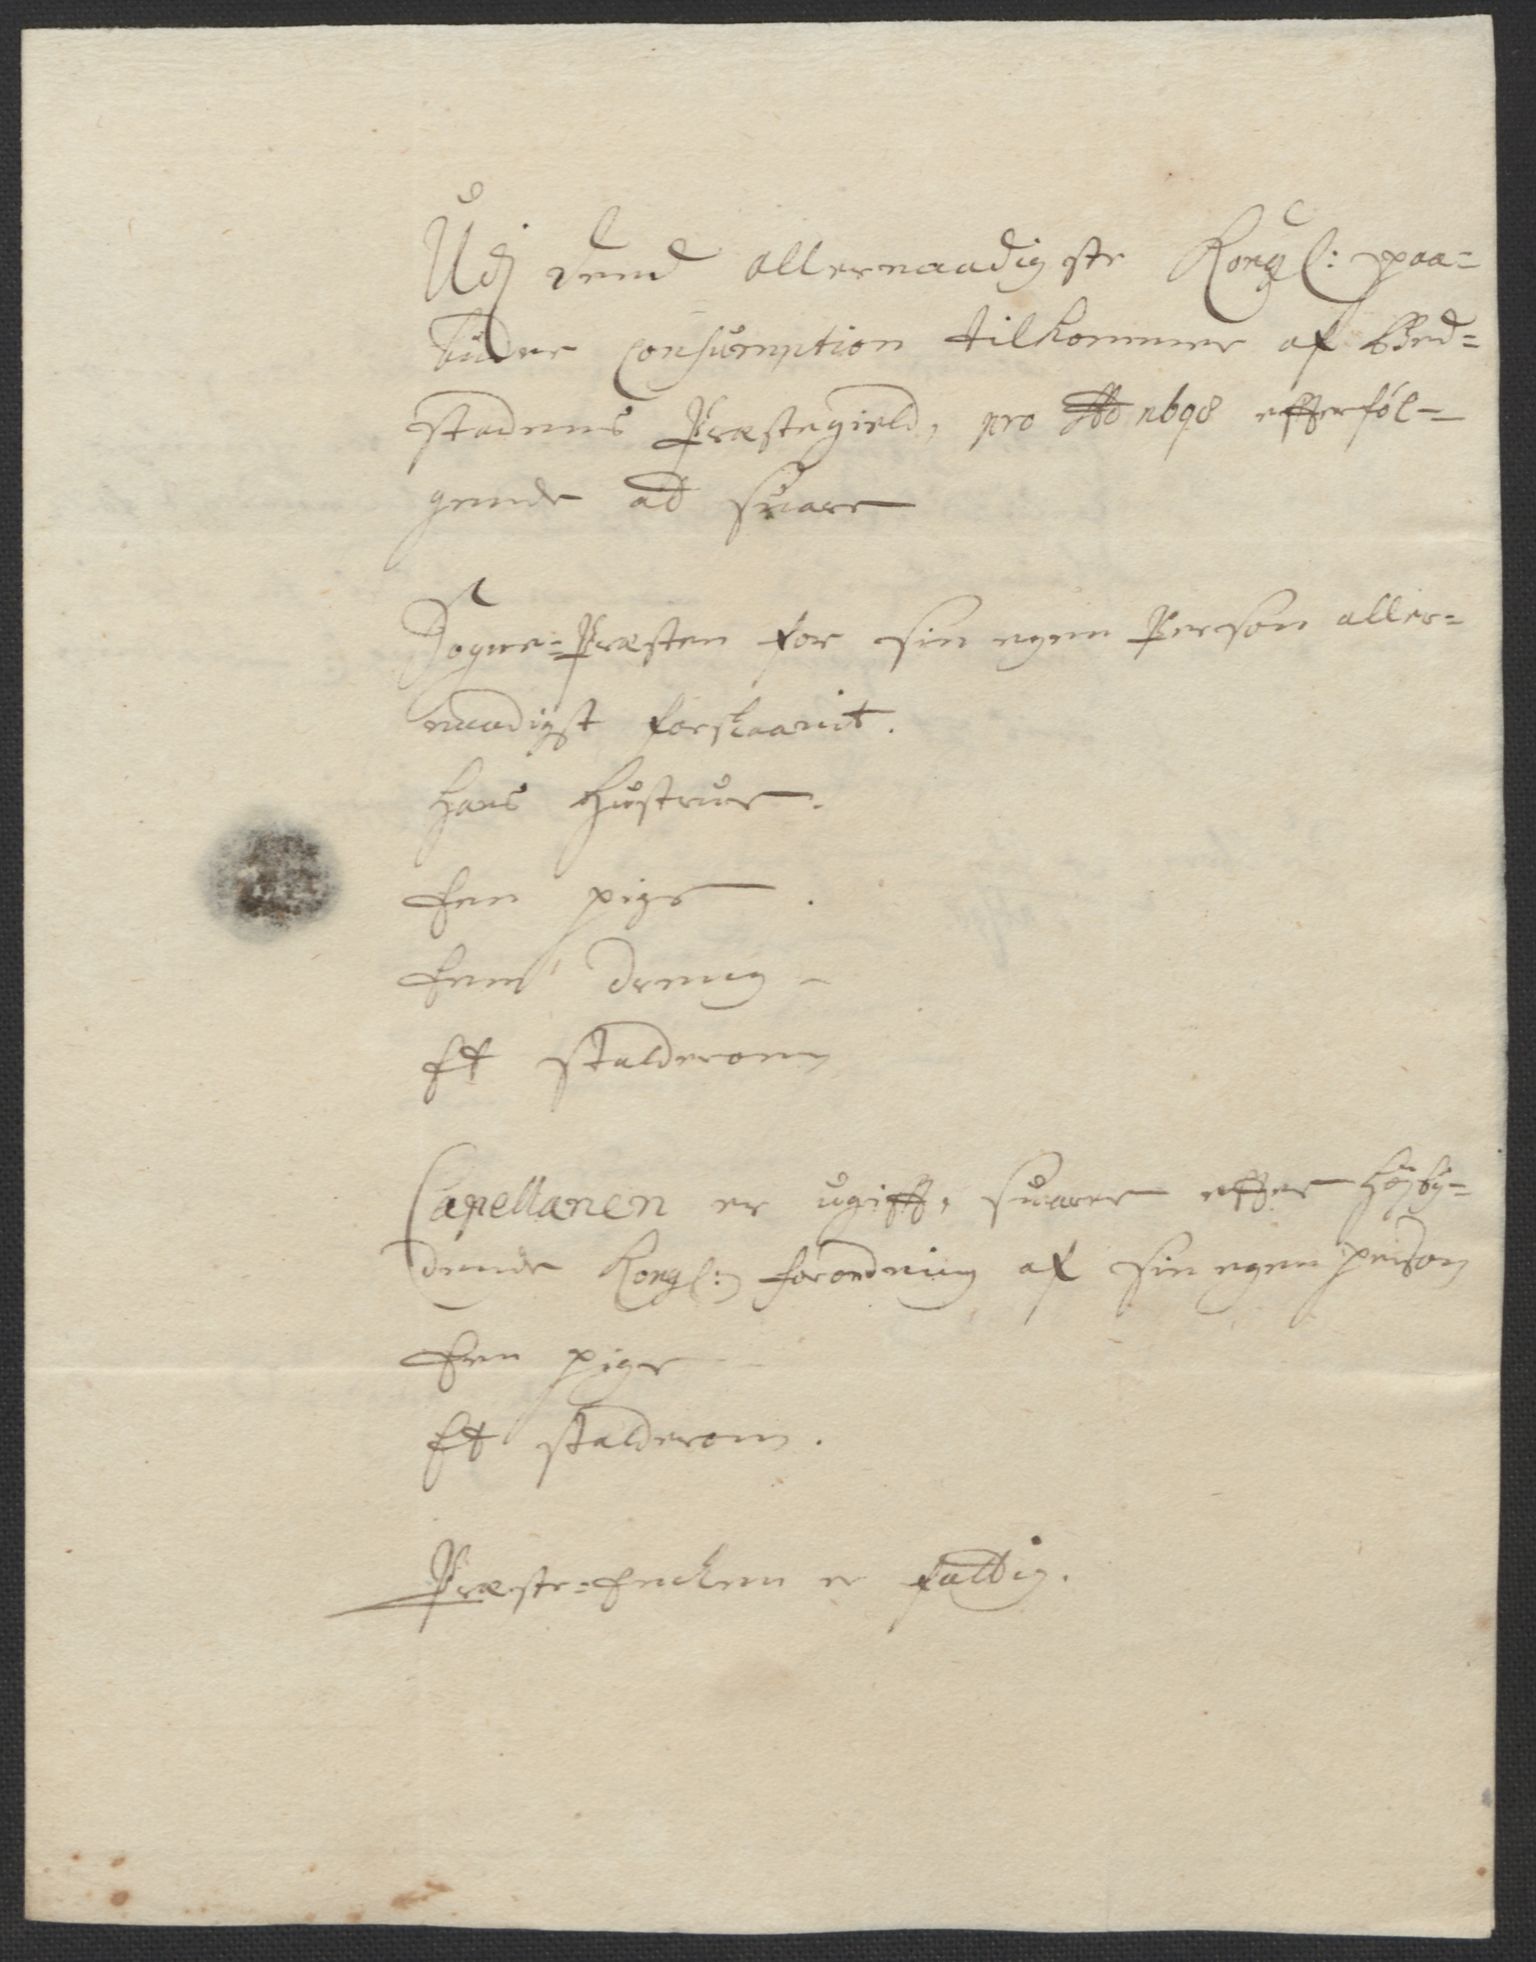 Udj dend allernaadigste Kongl: paa-
budne Consumption tilkommer af Bed-
stadens Præstegield, pro Ao 1698 effterföl-
gende at suare
Sogne-Præsten for sin egen Person aller-
naadigst forskaanit.
Hans Hustrue.
Een pige.
Een dreng
Et stalderom
Capellanen er ugifft, suarer effter höjby-
dende Kongl: forordning af sin egen person
Een pige
Et stalderom.
Præste-Enken er fattig.